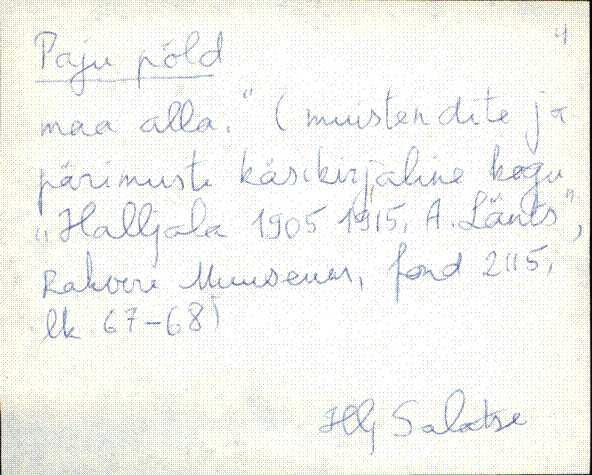 4
Paju põld
maa alla." (muistendite ja
pärimuste käsikirjaline kogu
"Halljala 1905 1915, A. Länts",
Rakvere Muuseum, fond 2115,
lk. 67-68)
Hlj Salatse